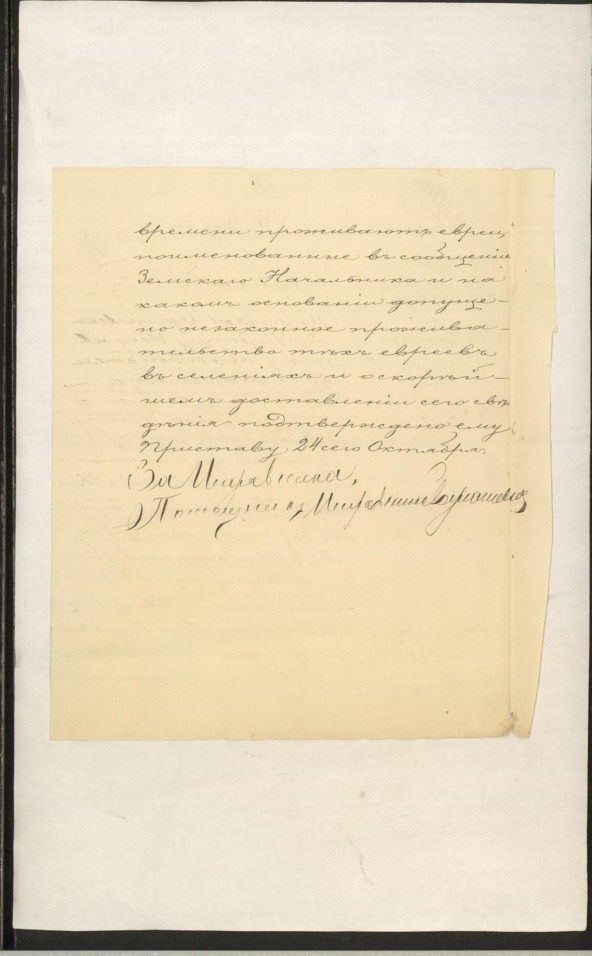 времени проживаютъ евреи,
поименованные въ сообщеніи
Земскаго Начальника и на
какомъ основаніи допуще-
но незаконное прожива-
тельство тѣхъ евреевъ
въ селеніяхъ и о скорѣй-
шемъ доставленіи сего свѣ
дѣнія подтверждено ему
Приставу 24 сего Октября.
За Исправника,
Помощникъ